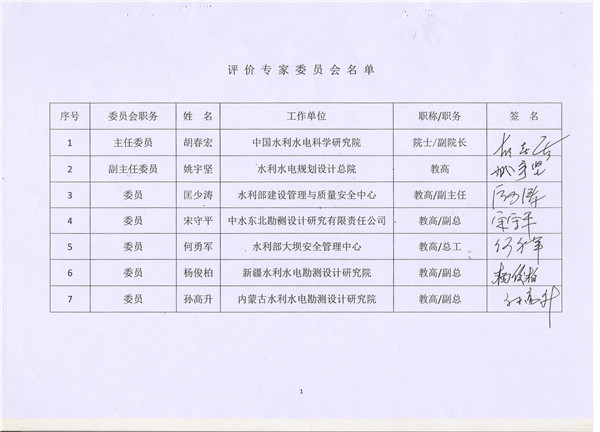 评价专家委员会名单
序号 委员会职务 姓名 工作单位 职称/职务 签名
1 主任委员 胡春宏 中国水利水电科学研究院 院士/副院长 胡春宏
2 副主任委员 姚宇坚 水利水电规划设计总院 教高 姚宇坚
3 委员 匡少涛 水利部建设管理与质量安全中心 教高/副主任 匡少涛
4 委员 宋守平 中水东北勘测设计研究有限责任公司 教高/副总 宋守平
5 委员 何勇军 水利部大坝安全管理中心 教高/总工 何勇军
6 委员 杨俊柏 新疆水利水电勘测设计研究院 教高/副总 杨俊柏
7 委员 孙高升 内蒙古水利水电勘测设计研究院 教高/副总 孙高升
1